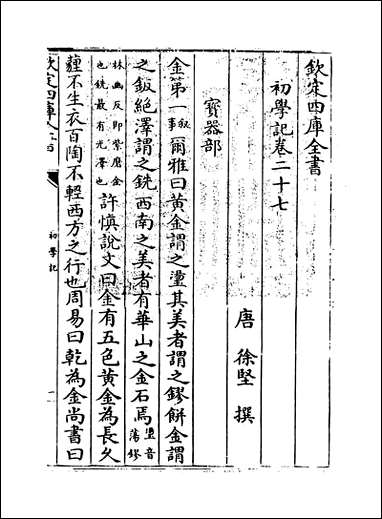 欽定四庫全書
初學記卷二十七
唐 徐堅 撰
寳器部
金第一敘事爾雅曰黄金謂之璗其美者謂之鏐餅金謂
之鈑絶澤謂之銑西南之美者有華山之金石焉璗音蕩鏐
林幽反即紫磨金也銑最有光澤也許慎說文曰金有五色黄金為長乆
薶不生衣百陶不輕西方之行也周易曰乾為金尚書曰
欽定四庫全書
初學記
一